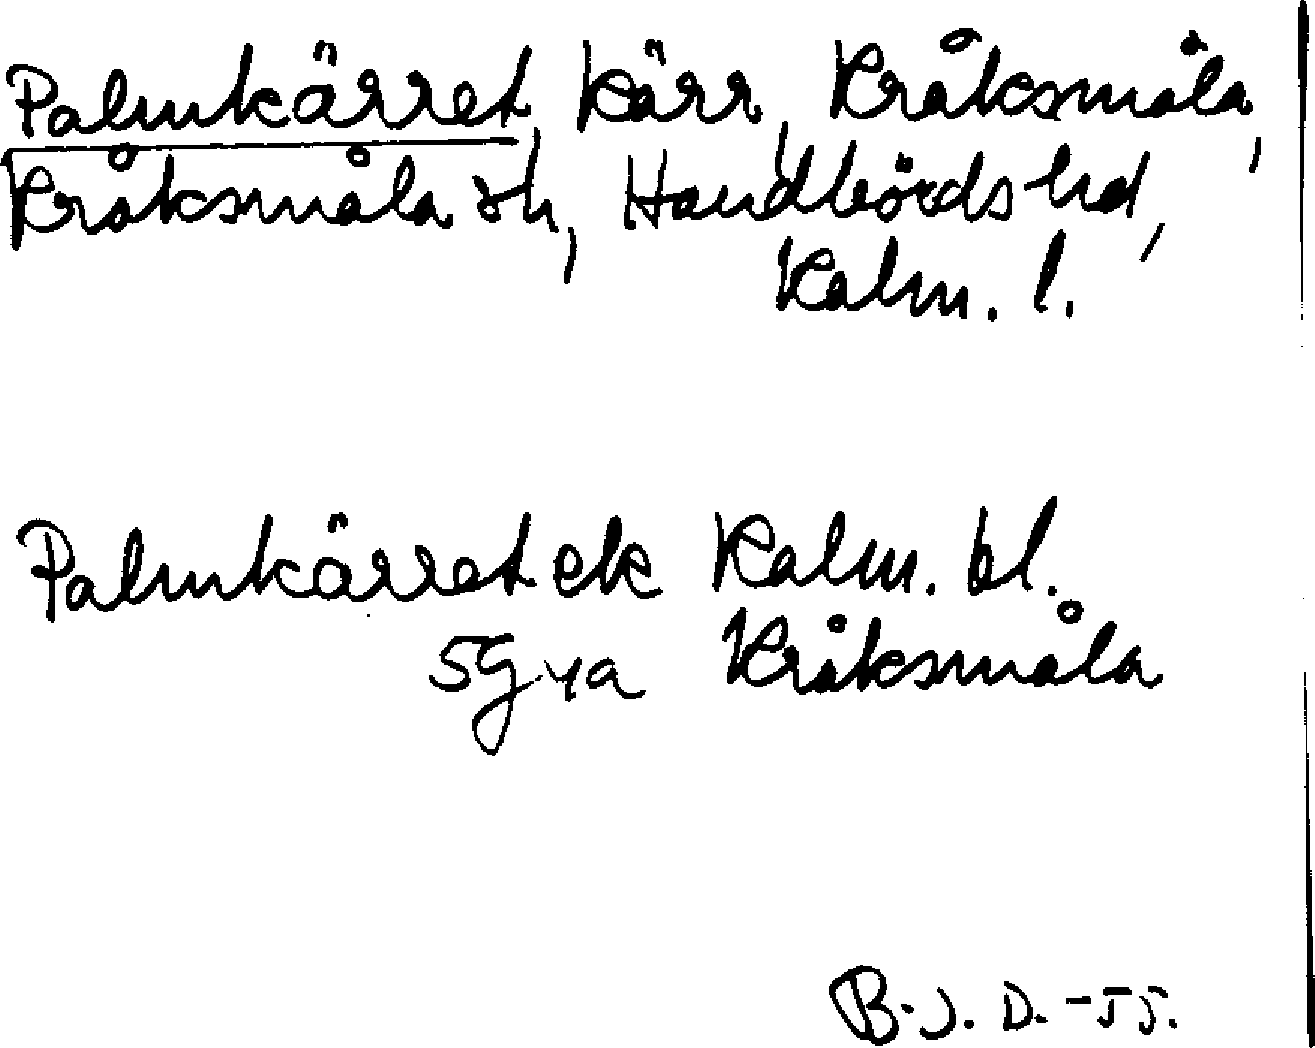 Palmkärret, kärr, Kråksmåla,
Kråksmåla sn, Handbörds hd,
Kalm. l.
Palmkärret ek Kalm. bl.
5G4a Kråksmåla
B.J.D. -55.